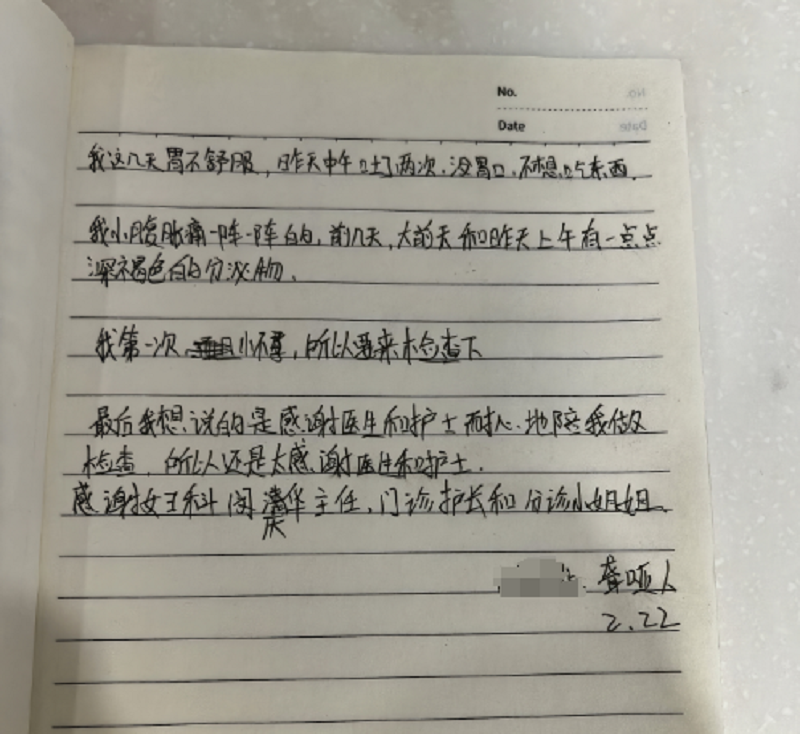 No.
Date
我这几天胃不舒服，昨天中午吐了两次，没胃口，不想吃东西。
我小腹胀痛一阵一阵的，前几天，大前天和昨天上午有一点点
深褐色的分泌物。
我第一次 小怀孕，所以要来检查下
最后我想说的是感谢医生和护士耐心地陪我做
检查，所以还是太感谢医生和护士。
感谢女王科阎 华主任，门诊护长和分诊小姐姐。
庆
聋哑人
2.22